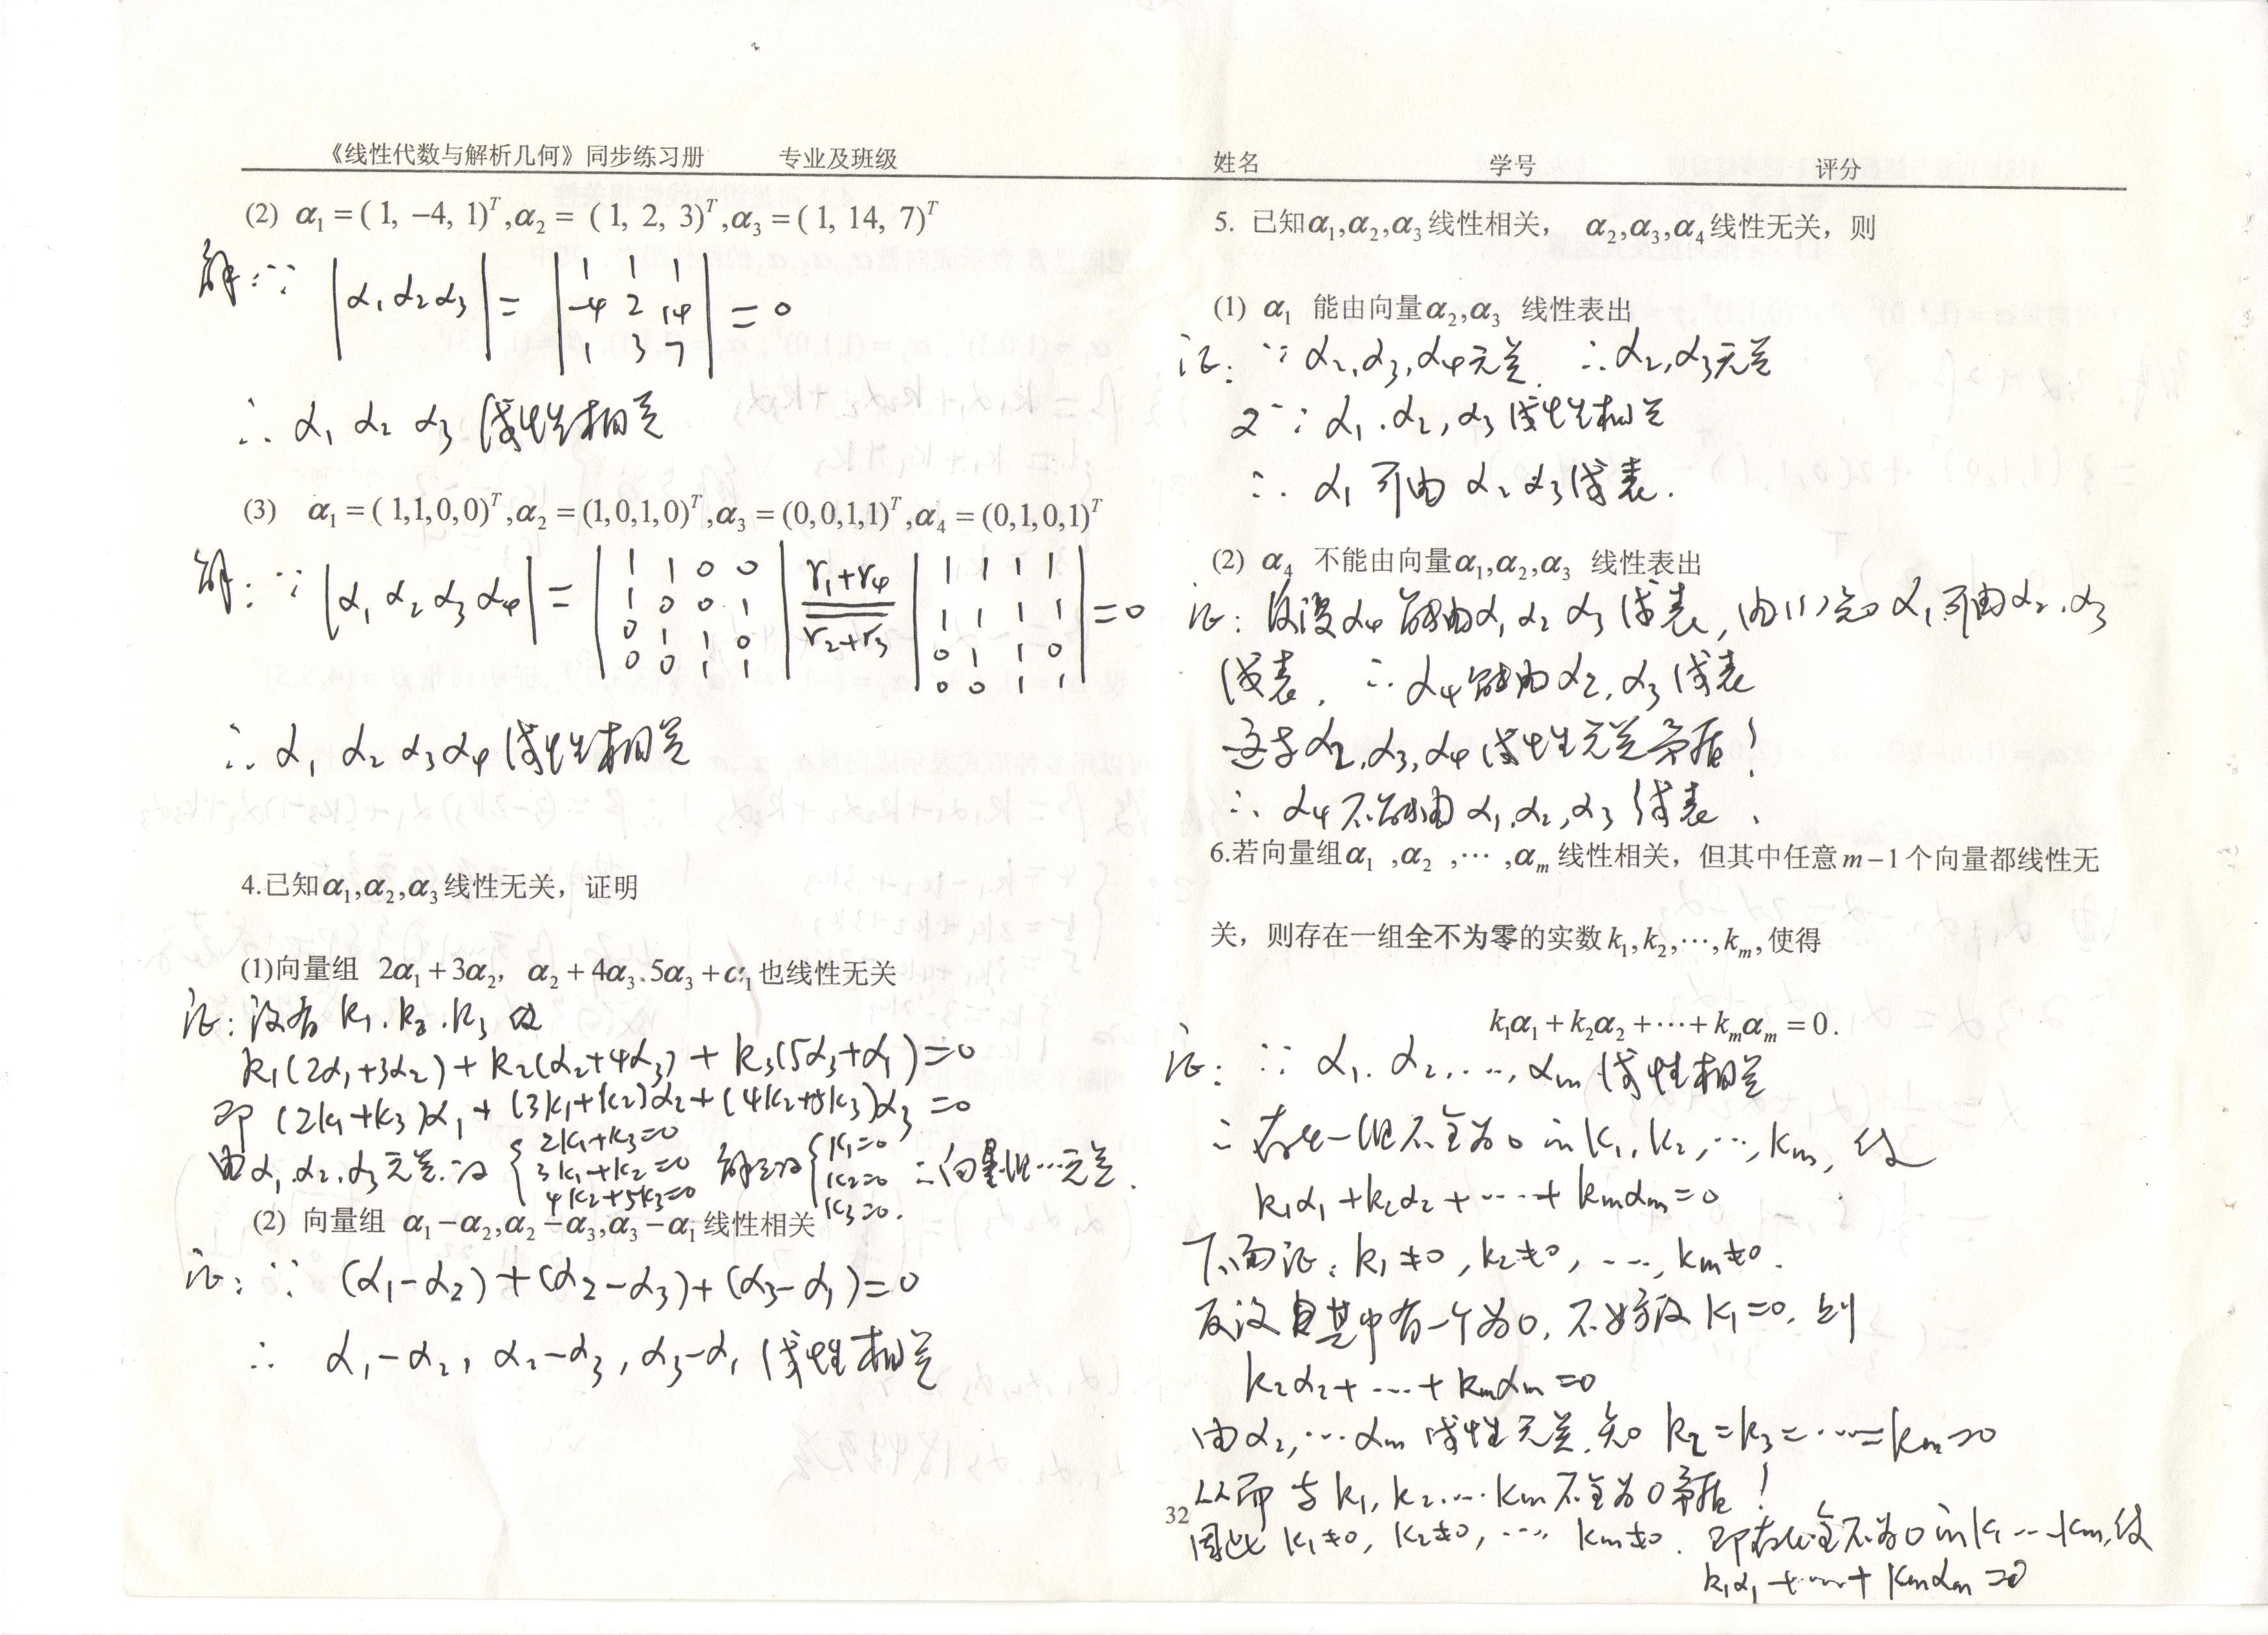 《线性代数与解析几何》同步练习册 专业及班级 姓名 学号 评分
(2) α₁ = ( 1, −4, 1)ᵀ,α₂ = ( 1, 2, 3)ᵀ,α₃ = ( 1, 14, 7)ᵀ
解:∵ |α₁ α₂ α₃| = | 1 1 1 ; −4 2 14 ; 1 3 7 | = 0
∴ α₁ α₂ α₃ 线性相关
(3) α₁ = ( 1,1,0,0)ᵀ,α₂ = (1,0,1,0)ᵀ,α₃ = (0,0,1,1)ᵀ,α₄ = (0,1,0,1)ᵀ
解:∵ |α₁ α₂ α₃ α₄| = | 1 1 0 0 ; 1 0 0 1 ; 0 1 1 0 ; 0 0 1 1 | r₁+r₄ r₂+r₃ | 1 1 1 1 ; 1 1 1 1 ; 0 1 1 0 ; 0 0 1 1 | = 0
∴ α₁ α₂ α₃ α₄ 线性相关
4.已知α₁,α₂,α₃线性无关，证明
(1)向量组 2α₁ + 3α₂, α₂ + 4α₃.5α₃ + α₁ 也线性无关
证:设有 k₁.k₂.k₃ 使
k₁(2α₁+3α₂) + k₂(α₂+4α₃) + k₃(5α₃+α₁)=0
即 (2k₁+k₃)α₁ + (3k₁+k₂)α₂+(4k₂+5k₃)α₃ =0
由α₁.α₂.α₃无关.得 { 2k₁+k₃=0 ; 3k₁+k₂=0 ; 4k₂+5k₃=0 解之得 { k₁=0 ; k₂=0 ; k₃=0. ∴向量组…无关.
(2) 向量组 α₁ − α₂,α₂ − α₃,α₃ − α₁ 线性相关
证:∵ (α₁−α₂) +(α₂−α₃)+(α₃−α₁)=0
∴ α₁−α₂, α₂−α₃, α₃−α₁ 线性相关
5. 已知α₁,α₂,α₃线性相关， α₂,α₃,α₄线性无关，则
(1) α₁ 能由向量α₂,α₃ 线性表出
证: ∵ α₂,α₃,α₄无关. ∴α₂,α₃无关
又∵ α₁.α₂,α₃线性相关
∴ α₁ 可由 α₂ α₃线表.
(2) α₄ 不能由向量α₁,α₂,α₃ 线性表出
证: 反设α₄能由α₁ α₂ α₃ 线表, 由(1)知 α₁可由α₂.α₃
线表, ∴ α₄能由α₂,α₃线表
这与α₂,α₃,α₄线性无关矛盾!
∴ α₄不能由 α₁,α₂,α₃ 线表.
6.若向量组α₁ ,α₂ ,⋯ ,αₘ线性相关，但其中任意m−1个向量都线性无
关，则存在一组全不为零的实数k₁,k₂,⋯,kₘ,使得
k₁α₁ + k₂α₂ +⋯+ kₘαₘ = 0.
证: ∵ α₁. α₂,…, αₘ 线性相关
∴ 存在一组不全为0的k₁, k₂, …, kₘ, 使
k₁α₁ +k₂α₂ +⋯+ kₘαₘ=0
下面证: k₁≠0, k₂≠0, …, kₘ≠0.
反设其中有一个为0, 不妨设 k₁=0, 则
k₂α₂+ ⋯+ kₘαₘ=0
由α₂,…αₘ 线性无关,知 k₂=k₃=⋯=kₘ=0
从而与k₁, k₂…kₘ不全为0矛盾!
因此 k₁≠0, k₂≠0, … kₘ≠0. 即存在全不为0的k₁…kₘ,使
k₁α₁ +⋯+ kₘαₘ =0
32